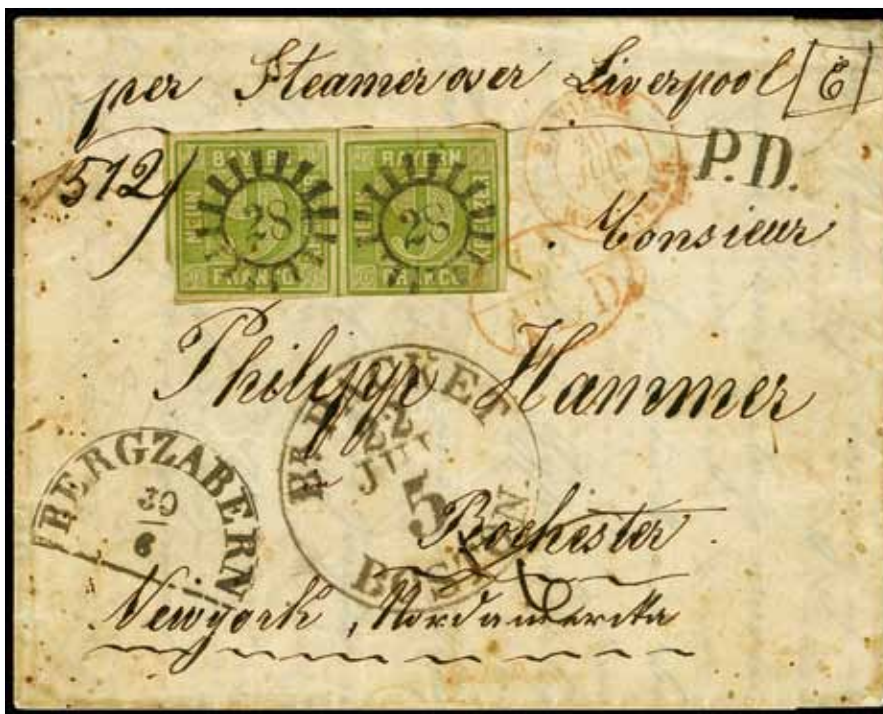 per Steamer over Liverpool E
P.D.
512
BAYERN
FRANCO
28
BAYERN
FRANCO
28
JUIN
Monsieur
Philipp Hammer
BR. PACKET
22
JUL
5
BOSTON.
BERGZABERN
30
6
Rochester
Newyork, Nordamerika